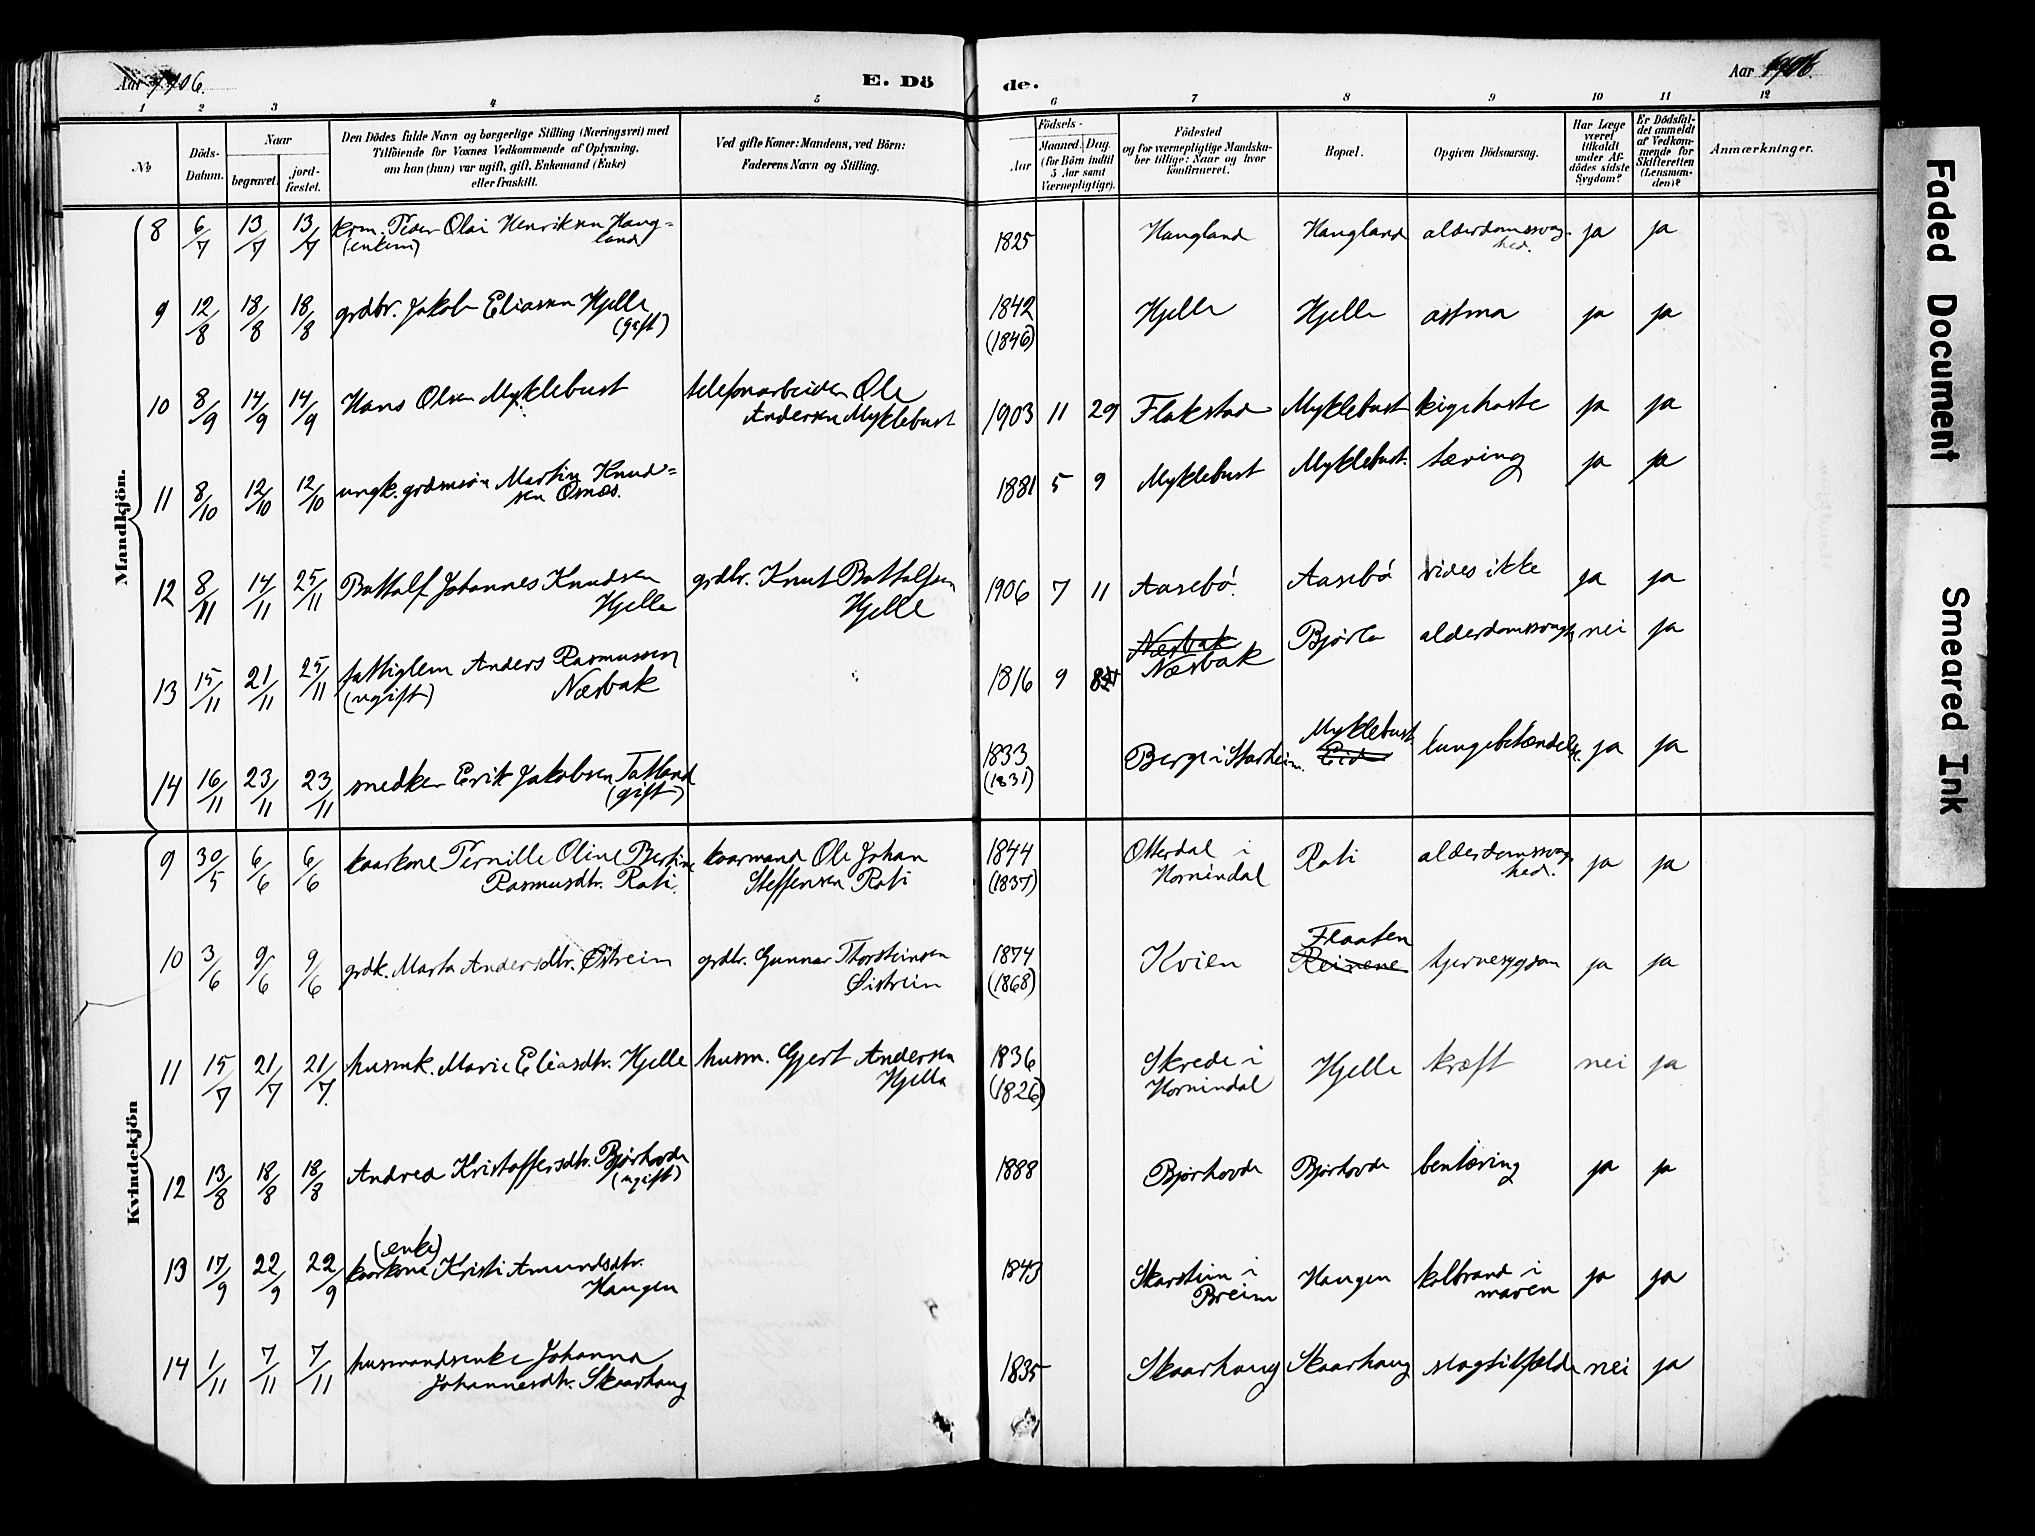 Aar 1906.
E. Dö
de.
Aar 1906.
1 2 3 4 5 6 7 8 9 10 11 12
№
Döds-
Datum.
Naar
begravet.
jord-
fæstet.
Den Dödes fulde Navn og borgerlige Stilling (Næringsvei) med
Tilföiende for Voxnes Vedkommende af Oplysning,
om han (hun) var ugift, gift, Enkemand (Enke)
eller fraskilt.
Ved gifte Koner: Mandens, ved Börn:
Faderens Navn og Stilling.
Födsels-
Aar
Maaned. Dag.
(for Börn indtil
5 Aar samt
Værnepligtige).
Födested
og for værnepligtige Mandska-
ber tillige: Naar og hvor
konfirmeret.
Bopæl.
Opgiven Dödsaarsag.
Har Læge
været
tilkaldt
under Af-
dödes sidste
Sygdom?
Er Dödsfal-
det anmeldt
af Vedkom-
mende for
Skifteretten
(Lensman-
den)?
Anmærkninger.
Mandkjön.
8 6/7 13/7 13/7 kom. Peder Olai Henriksen Haug= 1825 Haugland Haugland alderdomssvag- ja ja
(enkem) land hed.
9 12/8 18/8 18/8 grdbr. Jakob Eliassen Hjelle 1842 Hjelle Hjelle astma ja ja
(gift) (1846)
10 8/9 14/9 14/9 Hans Olsen Myklebust telefonarbeider Ole 1903 11 29 Flakstad Myklebust kighoste ja ja
Andersen Myklebust
11 8/10 12/10 12/10 ungk. grdmsøn Martin Knud= 1881 5 9 Myklebust Myklebust. tæring ja ja
sen Osnes.
12 8/11 14/11 25/11 Bottolf Johannes Knudsen grdbr. Knut Bottolfsen 1906 7 11 Aasebø. Aasebø vides ikke ja ja
Hjelle Hjelle
Næsbak
13 15/11 21/11 25/11 fattiglem Anders Rasmussen 1816 9 Næsbak Bjørlo alderdomssvagh. nei ja
(ugift) Næsbak
Myklebust
14 16/11 23/11 23/11 snedker Erik Jakobsen Totland 1833 Berge i Starheim. Eid lungebetændelse. ja ja
(gift) (1831)
Kvindekjön
9 30/5 6/6 6/6 kaarkone Pernille Oline Bertine kaarmand Ole Johan 1844 Otterdal i Roti alderdomssvag- ja ja
Rasmusdtr. Roti. Steffensen Roti (1837) Hornindal hed.
Flaaten
10 3/6 9/6 9/6 grdk. Marta Andersdtr. Østreim grdbr. Gunnar Thorsteinsen 1874 Kvien Reinene hjernesygdom ja ja
Øistrein (1868)
11 15/7 21/7 21/7. husmk. Marie Eliasdtr. Hjelle husm. Gjert Andersen 1836 Skrede i Hjelle kræft nei ja
Hjelle (1826) Hornindal
12 13/8 18/8 18/8 Andrea Kristoffersdtr. Bjørhovde 1888 Bjørhovde Bjørhovde bentæring ja ja
(ugift)
(enke)
13 17/9 22/9 22/9 kaarkone Kristi Amundsdtr. 1843 Skarstein i Haugen kolbrand i ja ja
Haugen Breim maven
14 1/11 7/11 7/11 husmandsenke Johanna 1835 Skaarhaug Skaarhaug slagtilfælde nei ja
Johannesdtr. Skaarhaug
Faded Document
Smeared Ink